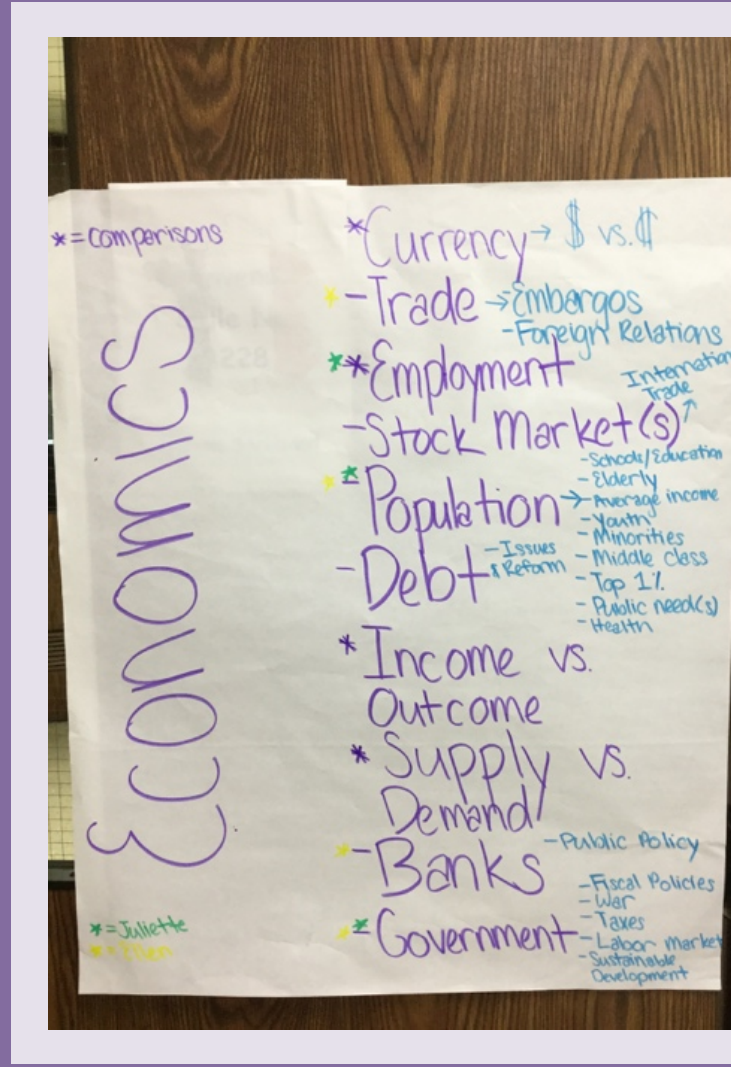 *=comparisons
Economics
*Currency → $ vs. ₵
* -Trade → Embargos
-Foreign Relations
**Employment
-Stock Market(s) ↗
International
Trade
* * -Population →
-Schools/Education
-Elderly
-Average income
-Youth
-Minorities
-Middle class
-Top 1%
-Public need(s)
-Health
-Debt
-Issues
& Reform
*Income vs.
Outcome
*Supply vs.
Demand
* -Banks
-Public Policy
* * -Government
-Fiscal Policies
-War
-Taxes
-Labor market
-Sustainable
Development
*=Juliette
*=Ellen